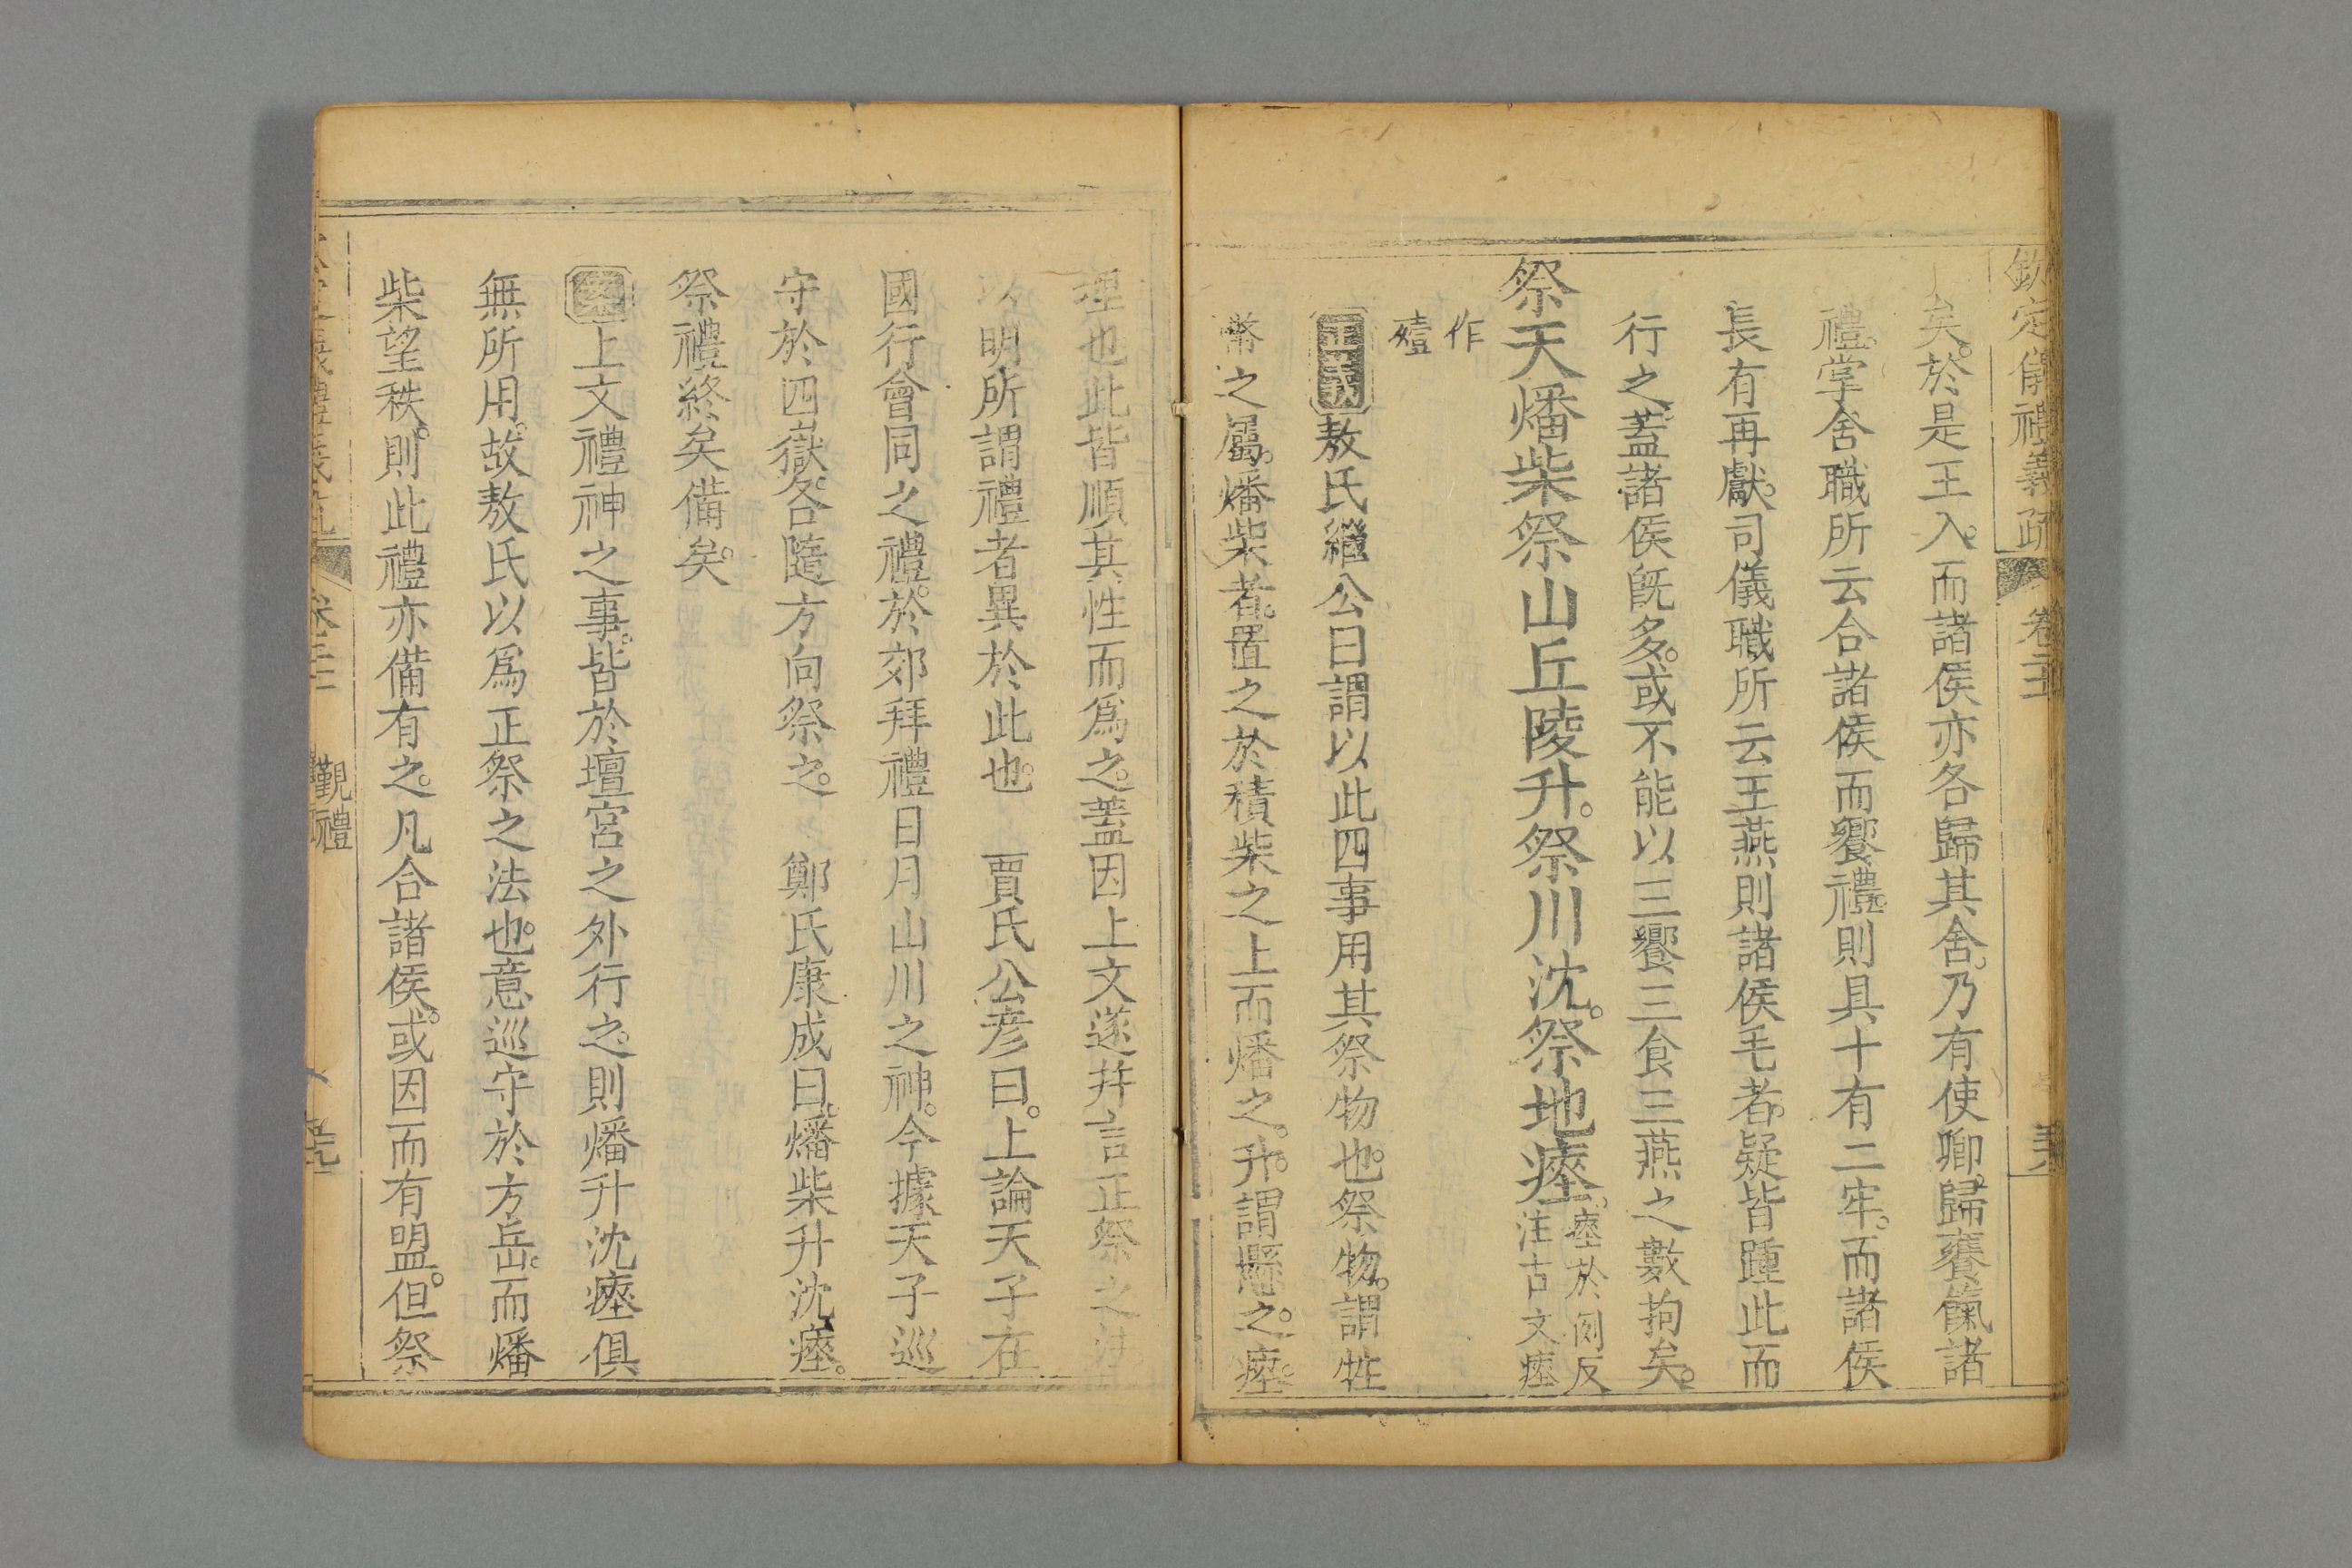 欽定儀禮義疏 卷二十
矣。於是王入。而諸侯亦各歸其舍。乃有使卿歸饔餼諸
禮。掌舍職所云合諸侯而饗禮。則具十有二牢。而諸侯
長有再獻。司儀職所云王燕則諸侯毛者。疑皆踵此而
行之。蓋諸侯旣多。或不能以三饗三食三燕之數拘矣。
祭天燔柴祭山丘陵升。祭川沈。祭地瘞。瘞於例反
注古文瘞
作
殪
正義敖氏繼公曰謂以此四事用其祭物也。祭物。謂牲
幣之屬。燔柴者。置之於積柴之上而燔之。升。謂懸之。瘞。
埋也此皆順其性而爲之。蓋因上文遂幷言正祭之法
以明所謂禮者異於此也。 賈氏公彥曰。上論天子在
國行會同之禮。於郊拜禮日月山川之神。今據天子巡
守於四嶽。各隨方向祭之。 鄭氏康成曰。燔柴升沈瘞。
祭禮終矣備矣。
案上文禮神之事。皆於壇宮之外行之。則燔升沈瘞俱
無所用。故敖氏以爲正祭之法也。意巡守於方岳。而燔
柴望秩。則此禮亦備有之。凡合諸侯。或因而有盟。但祭
覲禮